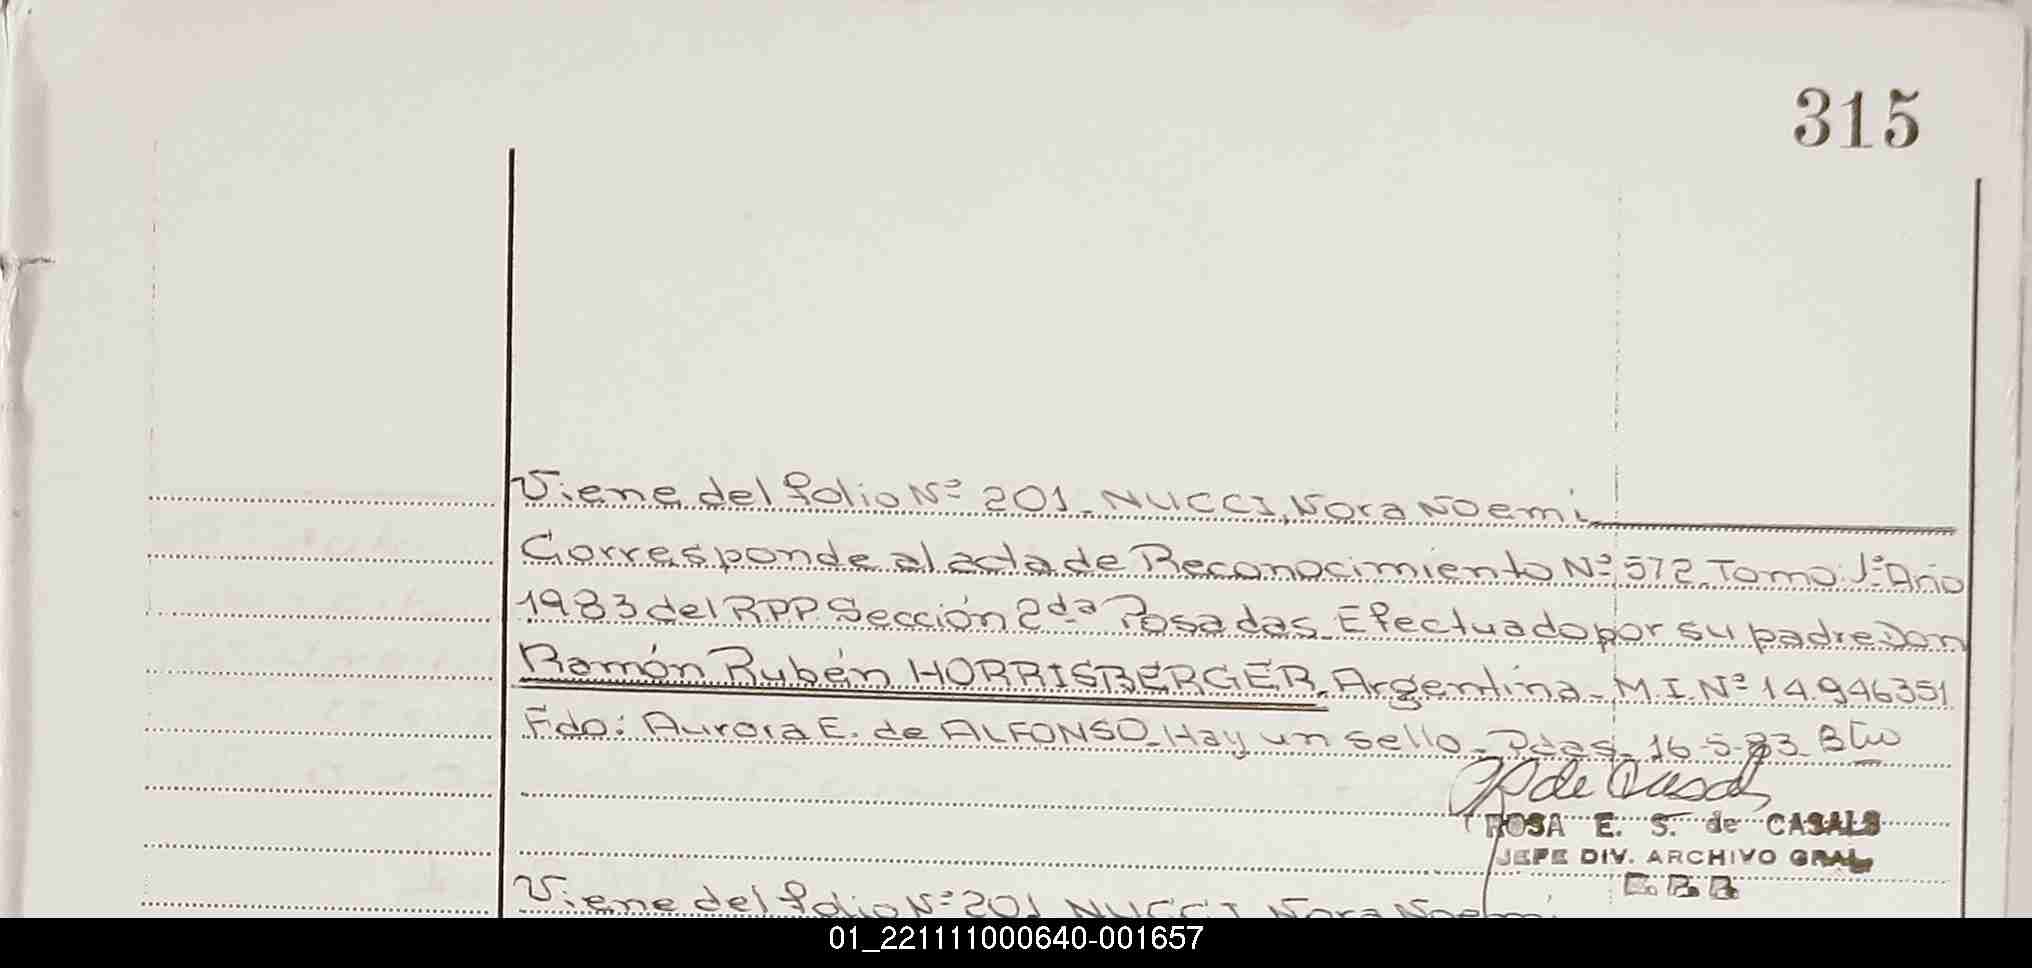 315
Viene del folio Nº 201. NUCCI, Nora Noemi
Corresponde al acta de Reconocimiento Nº 572. Tomo: 1º Año
1983 del RPP. Sección 2da Posadas. Efectuado por su padre Don
Ramón Rubén HORRISBERGER. Argentina. M.I. Nº 14.946351
Fdo: Aurora E. de ALFONSO. Hay un sello. Pdas. 16-5-83
ROSA E. S. de CASALS
JEFE DIV. ARCHIVO GRAL
Viene del folio Nº 201 NUCCI, Nora Noemi
01_221111000640-001657